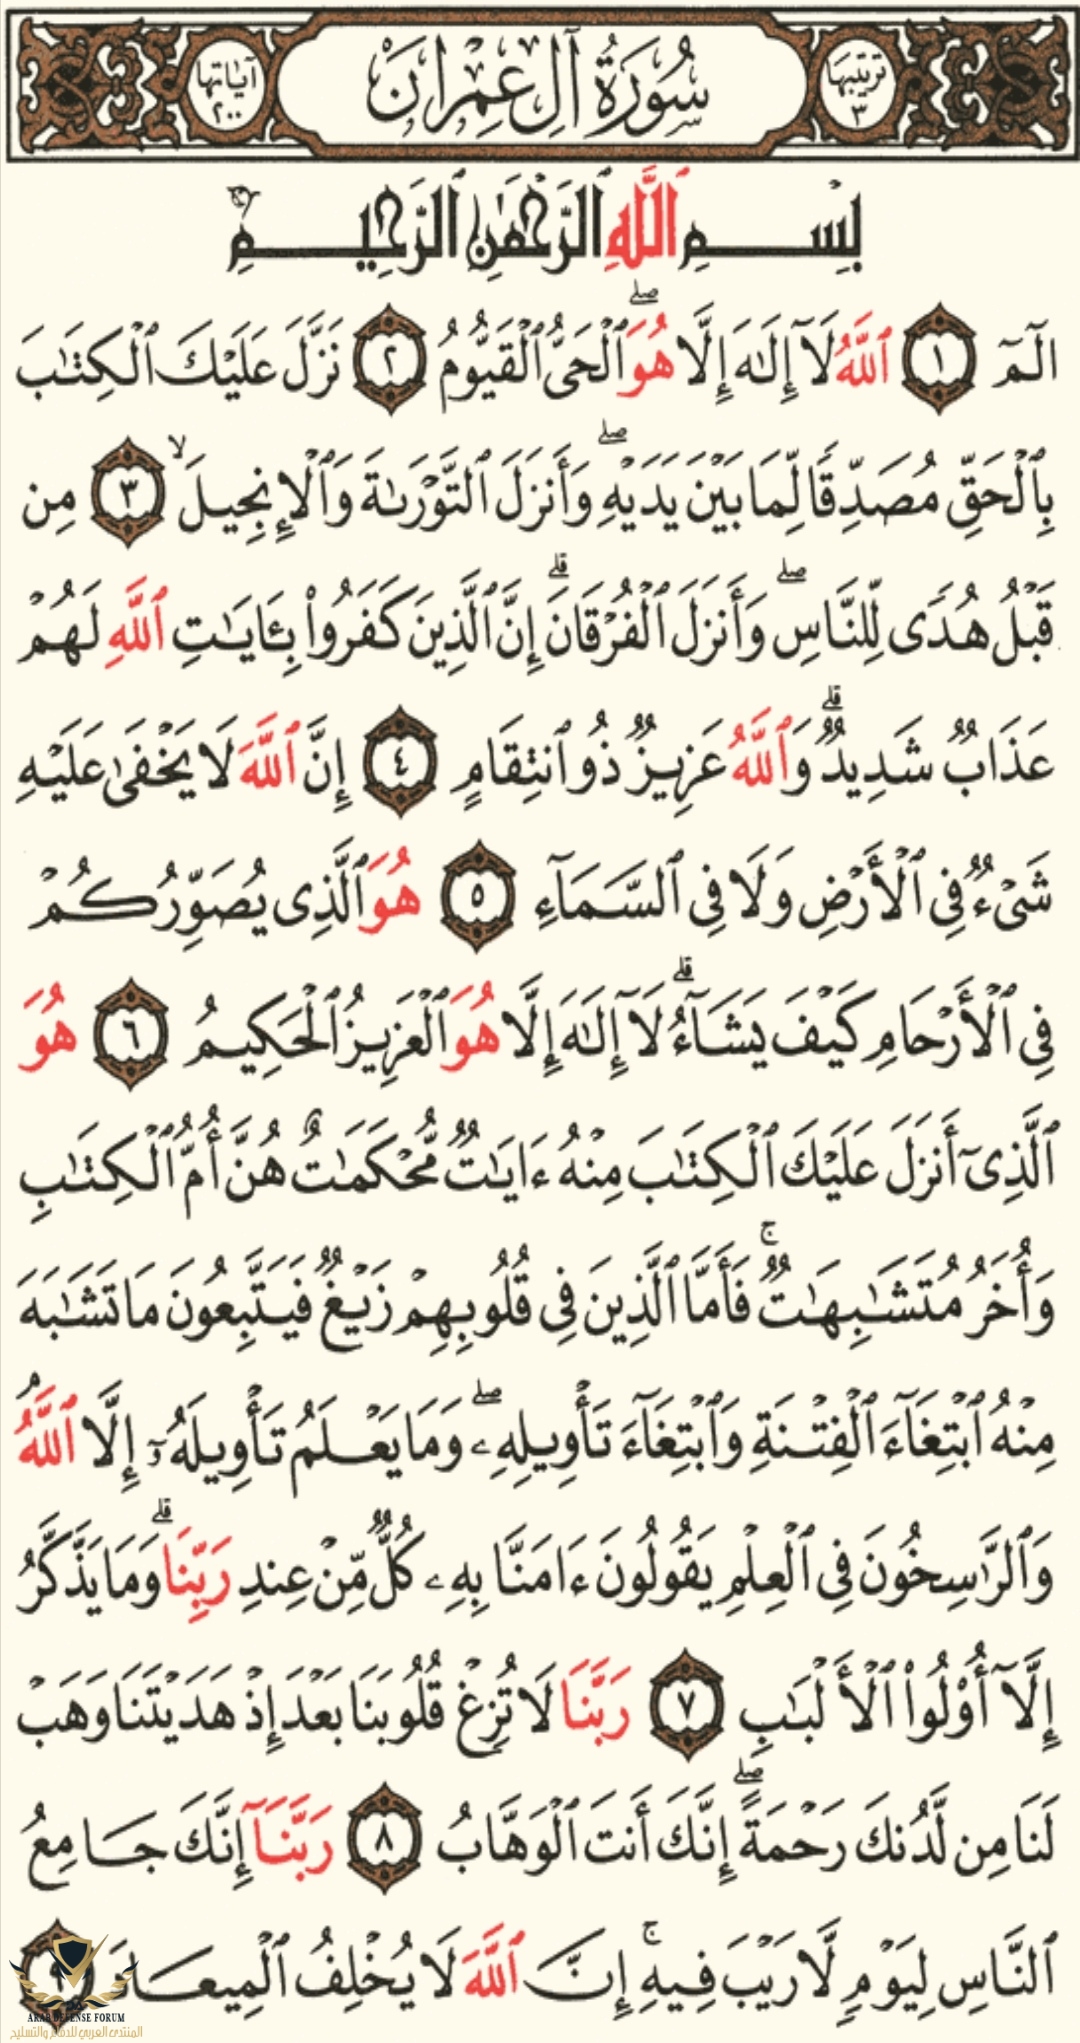 ترتيبها ٣
سُورَةُ آلِ عِمْرَانَ
آياتها ٢٠٠
بِسْمِ ٱللَّهِ ٱلرَّحْمَٰنِ ٱلرَّحِيمِ
الٓمٓ ١ ٱللَّهُ لَآ إِلَٰهَ إِلَّا هُوَ ۖ ٱلْحَىُّ ٱلْقَيُّومُ ٢ نَزَّلَ عَلَيْكَ ٱلْكِتَٰبَ
بِٱلْحَقِّ مُصَدِّقًا لِّمَا بَيْنَ يَدَيْهِ ۖ وَأَنزَلَ ٱلتَّوْرَىٰةَ وَٱلْإِنجِيلَ ۙ ٣ مِن
قَبْلُ هُدًى لِّلنَّاسِ ۖ وَأَنزَلَ ٱلْفُرْقَانَ ۗ إِنَّ ٱلَّذِينَ كَفَرُوا۟ بِـَٔايَٰتِ ٱللَّهِ لَهُمْ
عَذَابٌ شَدِيدٌ ۗ وَٱللَّهُ عَزِيزٌ ذُو ٱنتِقَامٍ ٤ إِنَّ ٱللَّهَ لَا يَخْفَىٰ عَلَيْهِ
شَىْءٌ فِى ٱلْأَرْضِ وَلَا فِى ٱلسَّمَآءِ ٥ هُوَ ٱلَّذِى يُصَوِّرُكُمْ
فِى ٱلْأَرْحَامِ كَيْفَ يَشَآءُ ۗ لَآ إِلَٰهَ إِلَّا هُوَ ٱلْعَزِيزُ ٱلْحَكِيمُ ٦ هُوَ
ٱلَّذِىٓ أَنزَلَ عَلَيْكَ ٱلْكِتَٰبَ مِنْهُ ءَايَٰتٌ مُّحْكَمَٰتٌ هُنَّ أُمُّ ٱلْكِتَٰبِ
وَأُخَرُ مُتَشَٰبِهَٰتٌ ۚ فَأَمَّا ٱلَّذِينَ فِى قُلُوبِهِمْ زَيْغٌ فَيَتَّبِعُونَ مَا تَشَٰبَهَ
مِنْهُ ٱبْتِغَآءَ ٱلْفِتْنَةِ وَٱبْتِغَآءَ تَأْوِيلِهِۦ ۖ وَمَا يَعْلَمُ تَأْوِيلَهُۥٓ إِلَّا ٱللَّهُ
وَٱلرَّٰسِخُونَ فِى ٱلْعِلْمِ يَقُولُونَ ءَامَنَّا بِهِۦ كُلٌّ مِّنْ عِندِ رَبِّنَا ۗ وَمَا يَذَّكَّرُ
إِلَّآ أُو۟لُوا۟ ٱلْأَلْبَٰبِ ٧ رَبَّنَا لَا تُزِغْ قُلُوبَنَا بَعْدَ إِذْ هَدَيْتَنَا وَهَبْ
لَنَا مِن لَّدُنكَ رَحْمَةً ۖ إِنَّكَ أَنتَ ٱلْوَهَّابُ ٨ رَبَّنَآ إِنَّكَ جَامِعُ
ٱلنَّاسِ لِيَوْمٍ لَّا رَيْبَ فِيهِ ۚ إِنَّ ٱللَّهَ لَا يُخْلِفُ ٱلْمِيعَادَ ٩
ARAB DEFENSE FORUM
المنتدى العربي للدفاع والتسليح